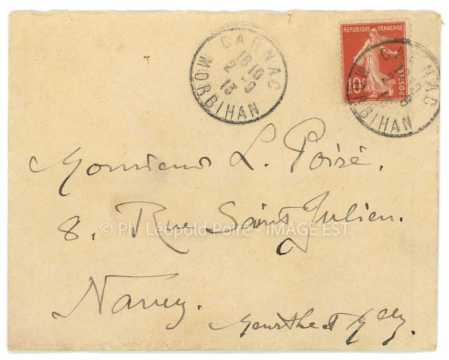 CARNAC
18 10
2 - 9
13
MORBIHAN
REPUBLIQUE FRANÇAISE
10
POSTES
CARNAC
MORBIHAN
Monsieur L. Poiré.
8. Rue Saint Julien.
© Ph. Léopold Poiré - IMAGE'EST
Nancy.
Meurthe et Mlle